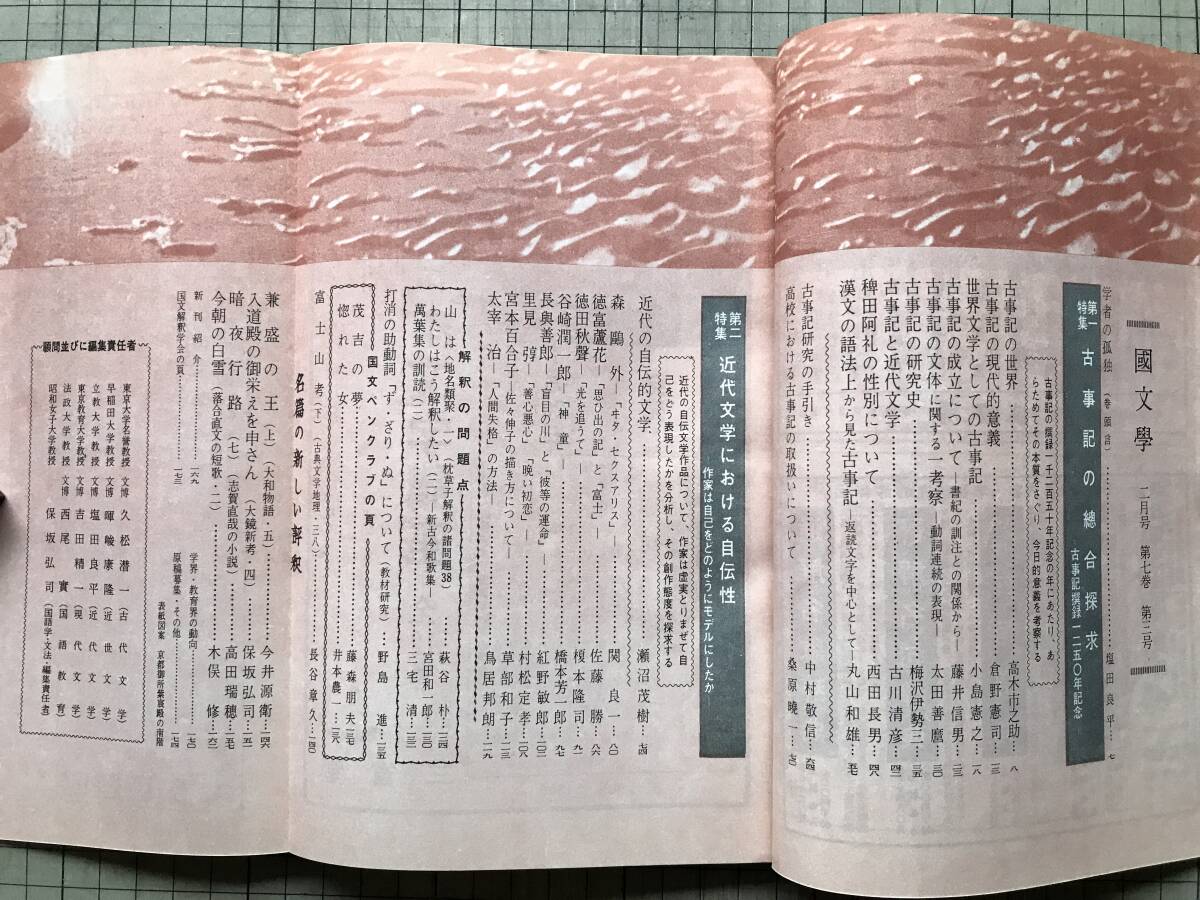 國文學 二月号 第七巻 第三号
学者の孤独―巻頭言―…塩田良平…七
第一特集 古事記の總合探求 古事記撰録一二五〇年記念
古事記の撰録一千二百五十年記念の年にあたり、あ
らためてその本質をさぐり、今日的意義を考察する
古事記の世界…高木市之助…八
古事記の現代的意義…倉野憲司…一三
世界文学としての古事記…小島憲之…一八
古事記の成立について―書紀の訓注との関係から―…藤井信男…二三
古事記の文体に関する一考察―動詞連続の表現―…太田善麿…三〇
古事記の研究史…梅沢伊勢三…三五
古事記と近代文学…古川清彦…四二
稗田阿礼の性別について…西田長男…四八
漢文の語法上から見た古事記―返読文字を中心として―…丸山和雄…五七
古事記研究の手引き…中村敬信…六四
高校における古事記の取扱いについて…桑原曉一…七〇
第二特集 近代文学における自伝性
―作家は自己をどのようにモデルにしたか―
近代の自伝文学作品について、作家は虚実とりまぜて自
己をどう表現したかを分析し、その創作態度を探求する
近代の自伝的文学…瀬沼茂樹…七四
森鷗外―「ヰタ・セクスアリス」―…関良一…八〇
徳富蘆花―「思ひ出の記」と「富士」―…佐藤勝…八六
徳田秋聲―「光を追うて」―…榎本隆司…九一
谷崎潤一郎―「神童」―…橋本芳一郎…九七
長與善郎―「盲目の川」と「彼等の運命」―…紅野敏郎…一〇二
里見弴―「善心悪心」「晩い初恋」―…村松定孝…一〇八
宮本百合子―佐々伸子の描き方について―…草部和子…一一三
太宰治―「人間失格」の方法―…鳥居邦朗…一一九
解釈の問題点
山は〈地名類聚・一〉(枕草子解釈の諸問題38)…萩谷朴…一二四
わたしはこう解釈したい(二)―新古今和歌集―…宮田和一郎…一三〇
萬葉集の訓読(二)…三宅清…一三二
打消の助動詞「ず・ざり・ぬ」について(教材研究)…野島進…一三五
国文ペンクラブの頁
茂吉の夢…藤森朋夫…一三七
惚れた女…井本農一…一三六
富士山考(下)(古典文学地理・三八)…長谷章久…一四〇
名篇の新しい評釈
兼盛の王(上)(大和物語・五)…今井源衛…一四六
入道殿の御栄えを申さん(大鏡新考・四)…保坂弘司…一五一
暗夜行路(七)(志賀直哉の小説)…高田瑞穂…一五七
今朝の白雪(落合直文の短歌・二)…木俣修…一六二
新刊紹介…一六九
国文解釈学会の頁…一七三
学界・教育界の動向…一七〇
原稿募集・その他…一七四
表紙図案 京都御所紫宸殿の南階
顧問並びに編集責任者
東京大学名誉教授 文博 久松潜一(古代文学)
早稲田大学教授 文博 暉峻康隆(近世文学)
立教大学教授 文博 塩田良平(近代文学)
東京教育大学教授 文博 吉田精一(現代文学)
法政大学教授 文博 西尾實(国語教育)
昭和女子大学教授 保坂弘司(国語学・文法・編集責任者)